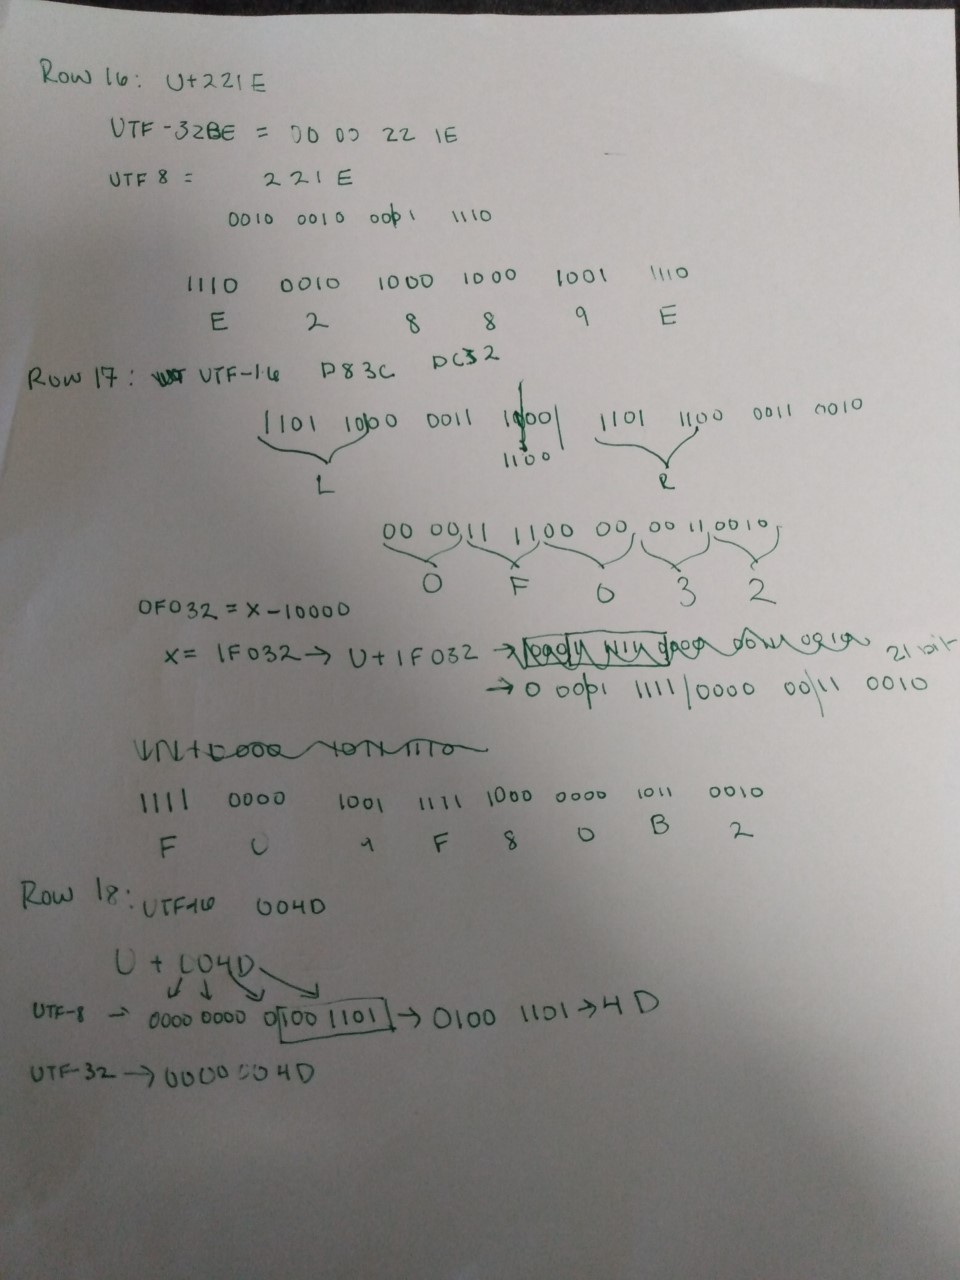 Row 16: U+221E
UTF-32BE = 00 00 22 1E
UTF 8 = 221E
0010 0010 0001 1110
1110 0010 1000 1000 1001 1110
E 2 8 8 9 E
Row 17: UTF-16 D83C DC32
1101 1000 0011 1000 1101 1100 0011 0010
1100
L R
00 0011 1100 00 00 11 0010
0 F 0 3 2
0F032 = X-10000
X= 1F032 → U+1F032 → 21 bit
→ 0 0001 1111 0000 0011 0010
1111 0000 1001 1111 1000 0000 1011 0010
F 0 9 F 8 0 B 2
Row 18: UTF16 004D
U+004D
UTF-8 → 0000 0000 0100 1101 → 0100 1101 → 4D
UTF-32 → 0000 004D